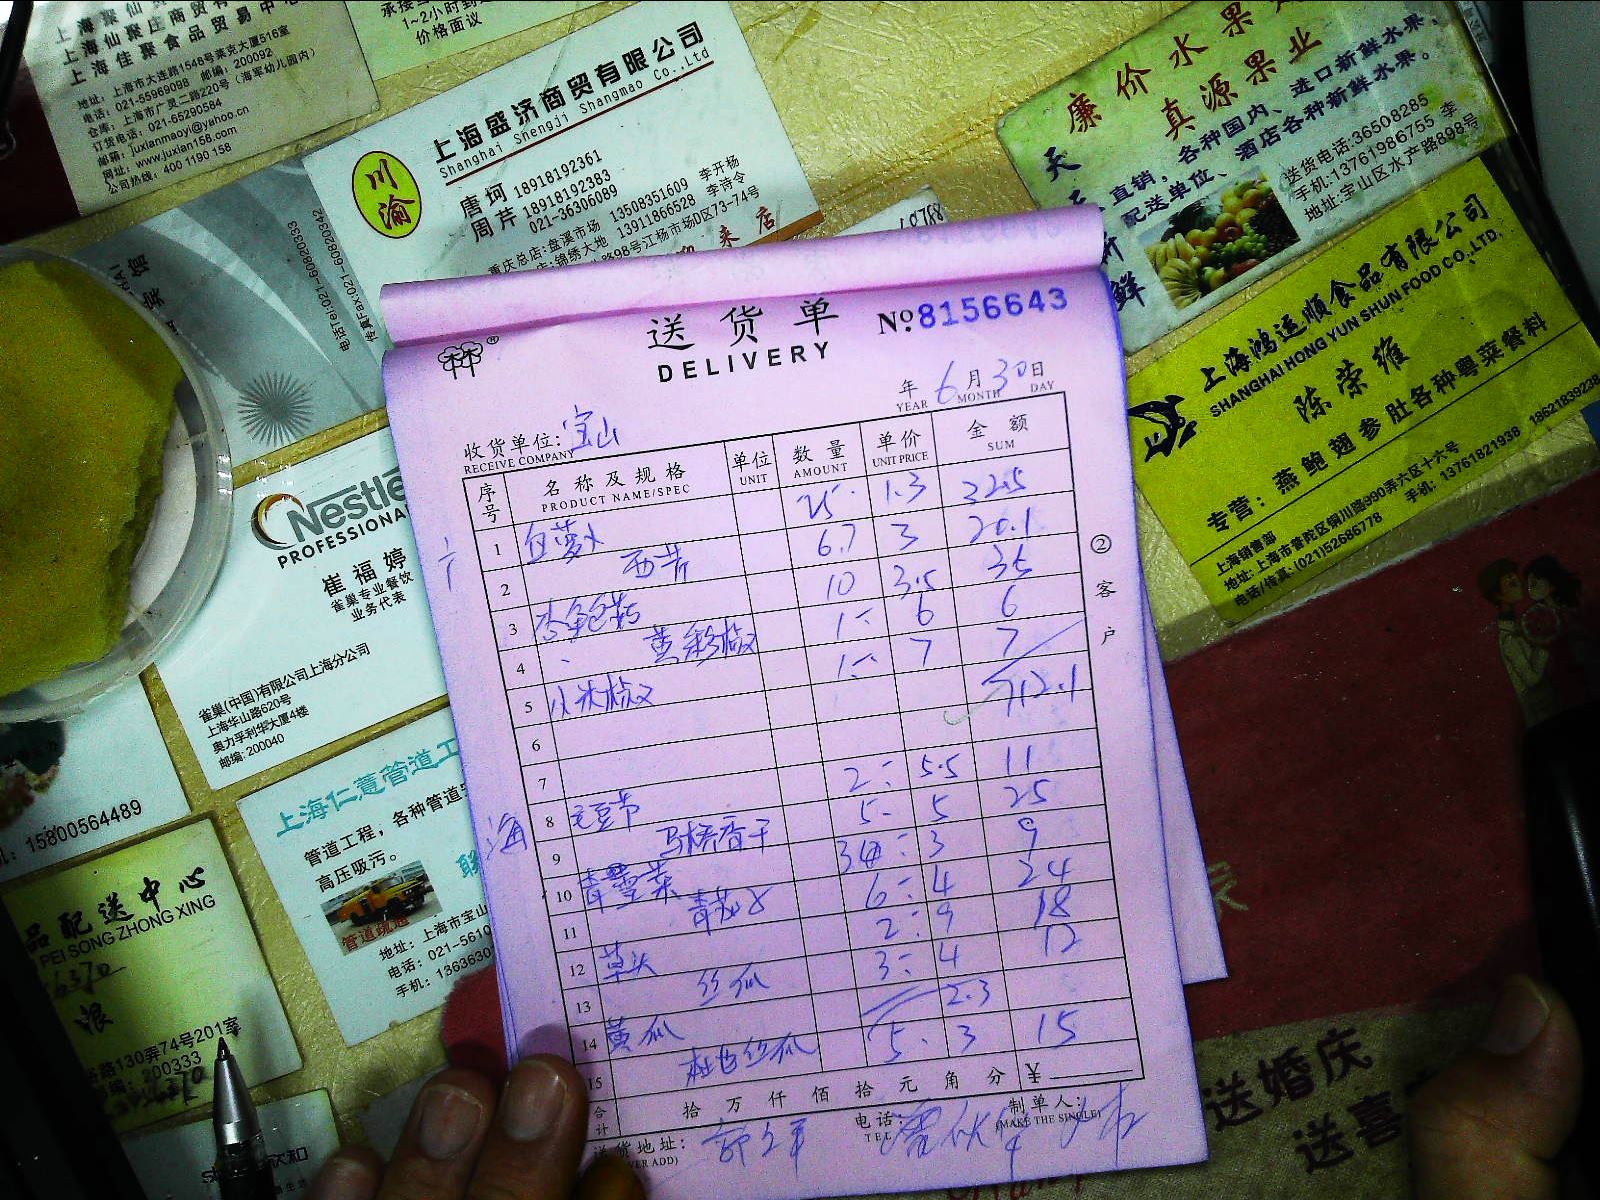 上海仙聚庄商贸有
上海佳聚食品贸易中心
地址：上海市大连路1548号莱克大厦516室
电话：021-55969098 邮编：200092
仓库：上海市广灵二路220号（海军幼儿园内）
订货电话：021-65290584
邮箱：juxianmaoyi@yahoo.cn
网址：www.juxian158.com
公司热线：400 1190 158
1~2小时到
价格面议
川渝
上海盛济商贸有限公司
Shanghai Shengji Shangmao Co.,Ltd
唐珂 18918192361
周芹 18918192383
021-36306089
重庆总店：盘溪市场 13508351609 李开杨
店：锦绣大地 13911866528 李诗令
路98号江杨市场D区73-74号
来店
廉价水果
真源果业
直销，各种国内、进口新鲜水果，
配送单位、酒店各种新鲜水果。
送货电话:36508285
手机:13761986755 李
地址:宝山区水产路898号
上海鸿运顺食品有限公司
SHANGHAI HONG YUN SHUN FOOD CO.,LTD.
陈荣维
专营：燕鲍翅参肚各种粤菜餐料
上海销售部
地址：上海市普陀区铜川路990弄六区十六号
电话/传真：(021)52686778 手机：13761821938 18621839238
电话Tel:021-60820333
传真Fax:021-60820342
Nestlé
PROFESSIONA
崔福婷
雀巢专业餐饮
业务代表
雀巢(中国)有限公司上海分公司
上海华山路620号
奥力孚利华大厦4楼
邮编: 200040
15800564489
上海仁薏管道工
管道工程，各种管道
高压吸污。
联
管道疏通
地址：上海市宝山
电话：021-5610
手机：1363630
品配送中心
PEI SONG ZHONG XING
路130弄74号201室
编：200333
送婚庆
送喜
送货单
DELIVERY
№8156643
年 6月30日
YEAR MONTH DAY
收货单位：宝山
RECEIVE COMPANY
序号 名称及规格 单位 数量 单价 金额
PRODUCT NAME/SPEC UNIT AMOUNT UNIT PRICE SUM
1 白萝卜 25 1.3 32.5
2 西芹 6.7 3 20.1
3 杏鲍菇 10 3.5 35
4 黄彩椒 1 6 6
5 小米椒 1 7 7
6 112.1
7
8 毛豆节 2 5.5 11
9 马桥香干 5 5 25
10 3 3 9
11 青花 6 4 24
12 草头 2 9 18
13 丝瓜 3 4 12
14 黄瓜 2.3
15 杜也丝瓜 5 3 15
合计 拾 万 仟 佰 拾 元 角 分 ¥
送货地址： 电话： 制单人：
TEL (MAKE THE SINGLE)
②客户
海